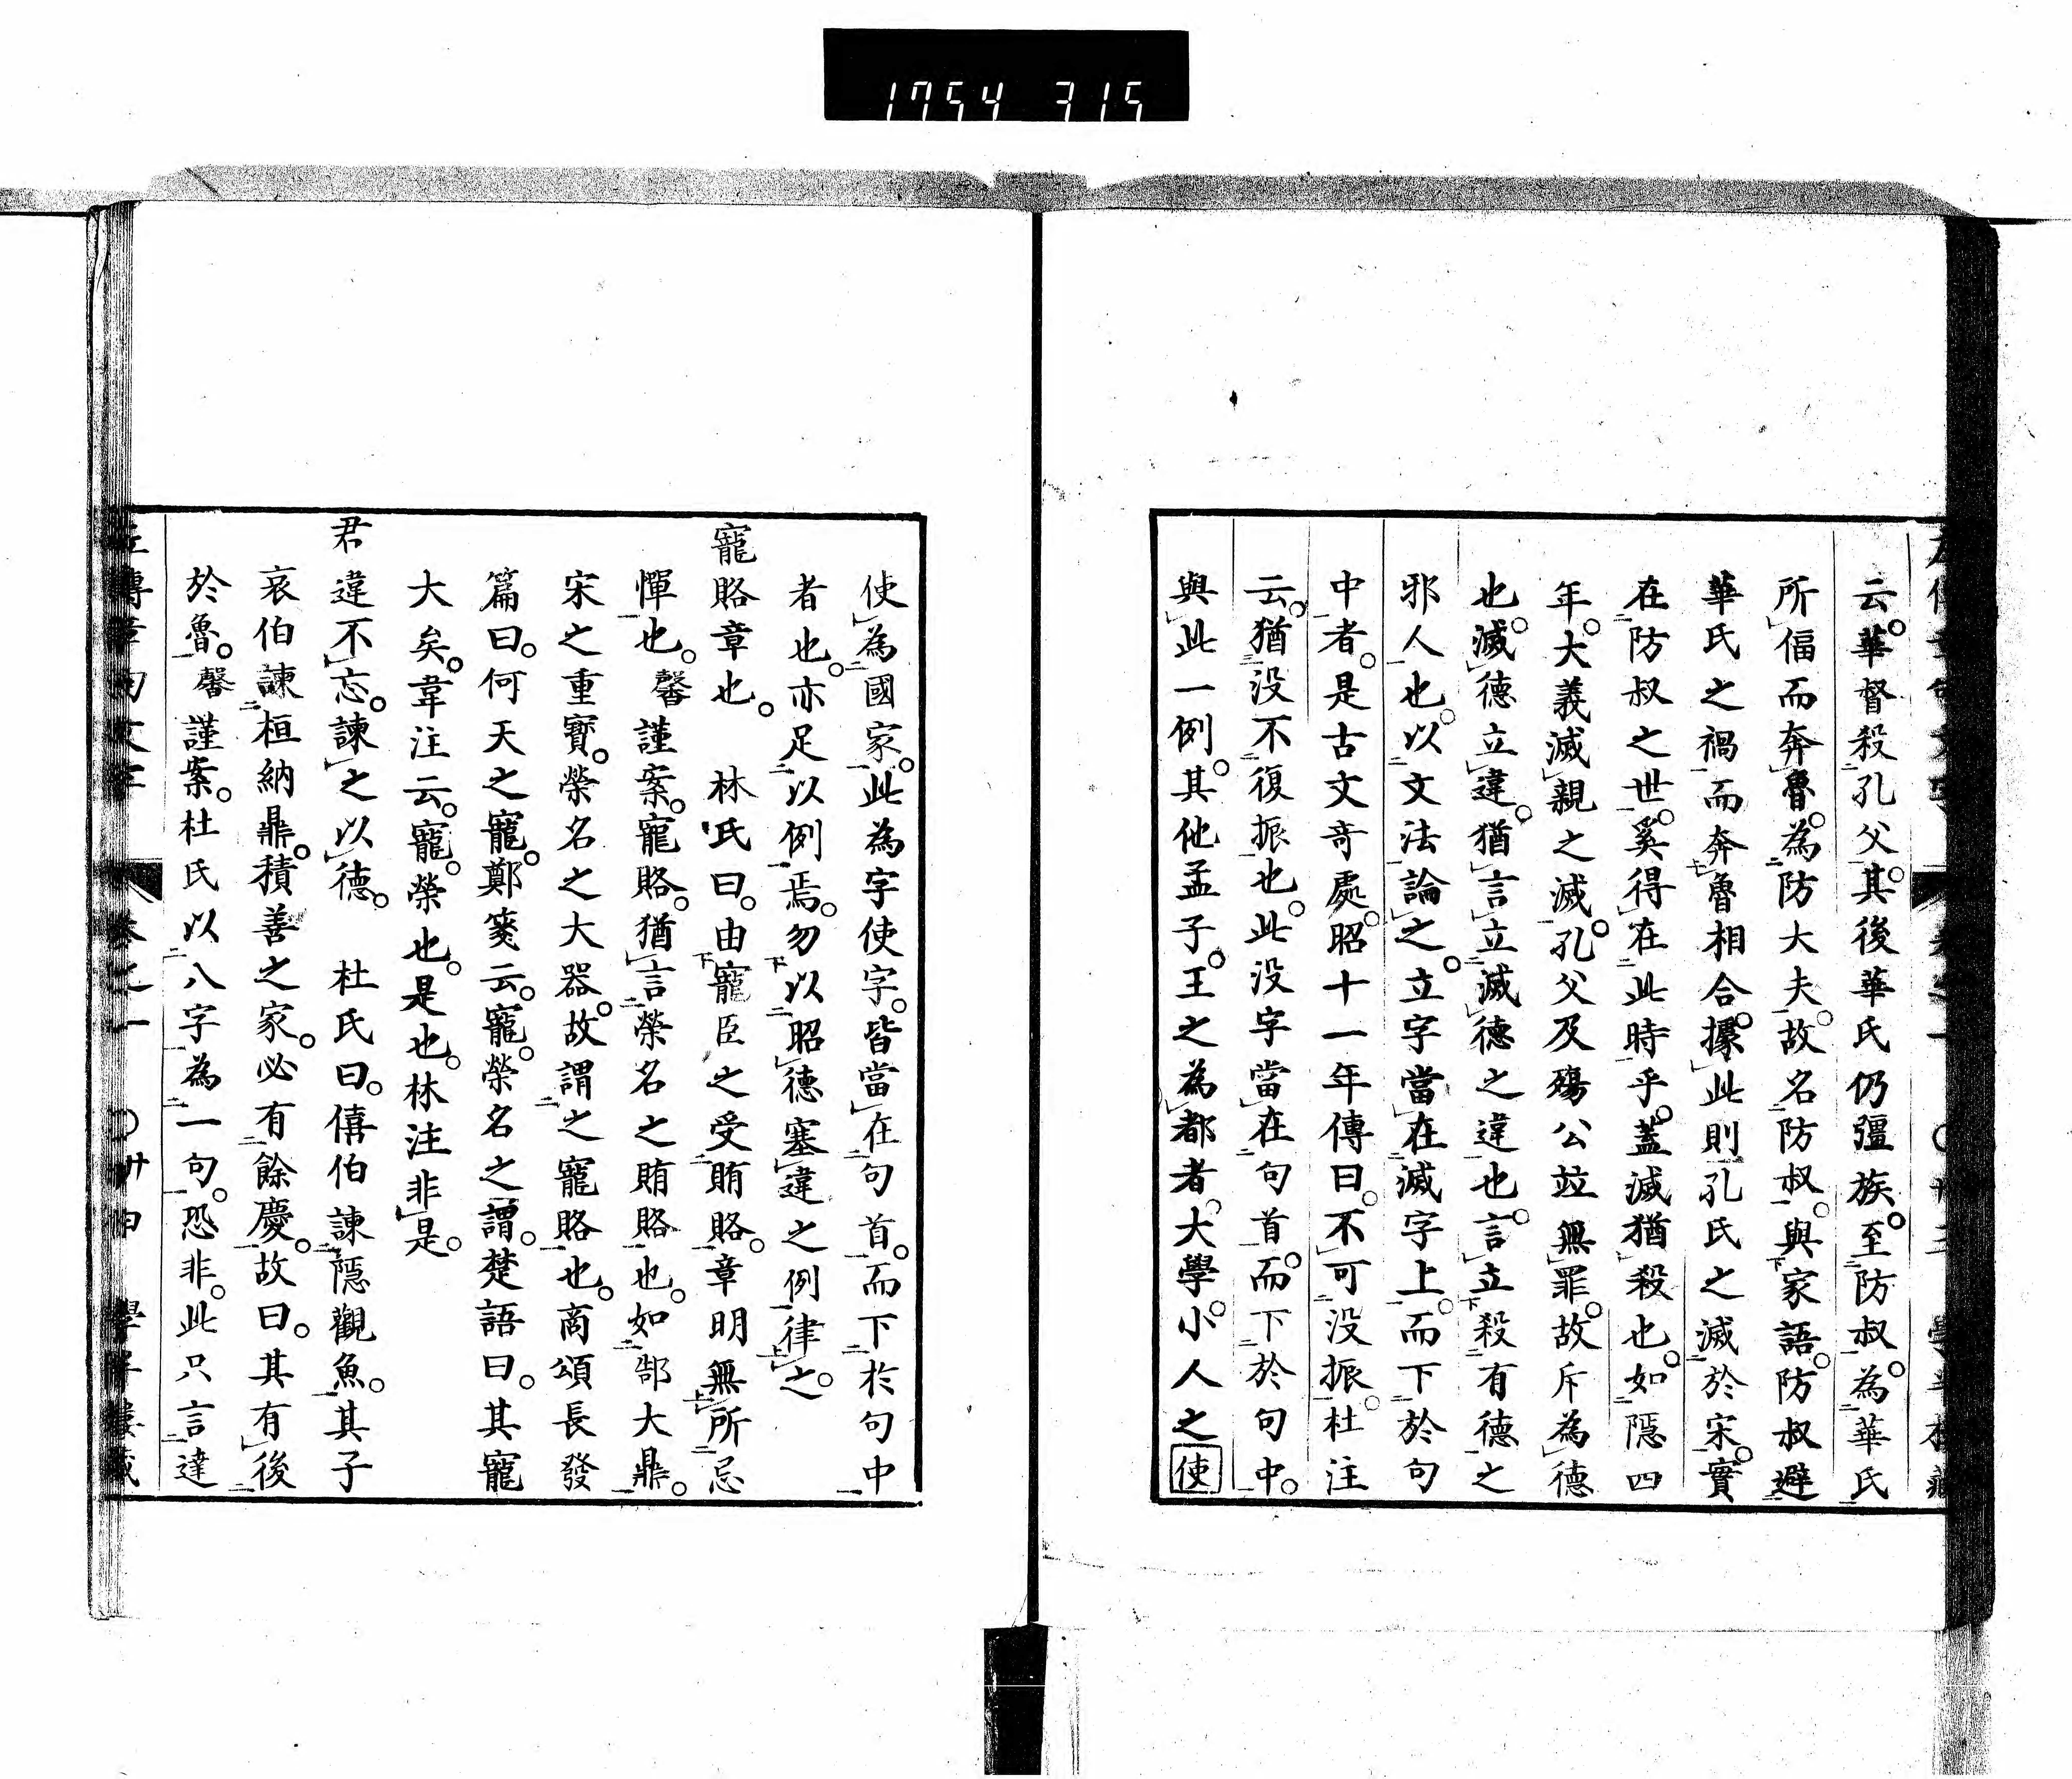 1754 315
云。華督殺孔父。其後華氏仍彊族。至防叔。為華氏
所偪而奔魯。為防大夫。故名防叔。與家語。防叔避
華氏之禍而奔魯相合。據此則孔氏之滅於宋。實
在防叔之世。奚得在此時乎。蓋滅猶殺也。如隱四
年。大義滅親之滅。孔父及殤公竝無罪。故斥為德
也。滅德立違。猶言立滅德之違也。言立殺有德之
邪人也。以文法論之。立字當在滅字上。而下於句
中者。是古文奇處。昭十一年傳曰。不可没振。杜注
云。猶没不復振也。此没字當在句首。而下於句中。
與此一例。其他孟子。王之為都者。大學。小人之使
使為國家。此為字使字。皆當在句首。而下於句中
者也。亦足以例焉。勿以昭德塞違之例律之。
寵賂章也。 林氏曰。由寵臣之受賄賂。章明無所忌
憚也。馨謹案。寵賂。猶言榮名之賄賂也。如郜大鼎。
宋之重寶。榮名之大器。故謂之寵賂也。商頌長發
篇曰。何天之寵。鄭箋云。寵。榮名之謂。楚語曰。其寵
大矣。韋注云。寵。榮也。是也。林注非是。
君違不忘。諫之以德。 杜氏曰。僖伯諫隱觀魚。其子
哀伯諫桓納鼎。積善之家。必有餘慶。故曰。其有後
於魯。馨謹案。杜氏以八字為一句。恐非。此只言違
左傳章句文字 卷之一 〇卅四 學半樓藏